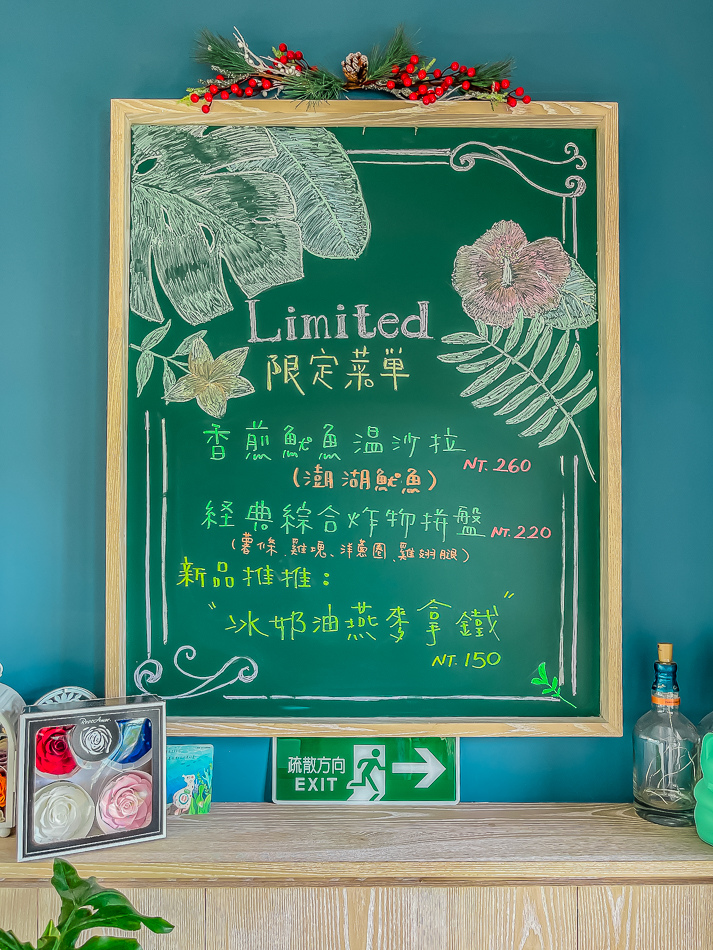 Limited
限定菜単
香煎魷魚温沙拉 NT. 260
(澎湖魷魚)
経典綜合炸物拼盤 NT. 220
(薯條、雞塊、洋蔥圈、雞翅腿)
新品推推：
"冰奶油燕麥拿鐵"
NT. 150
疏散方向
EXIT